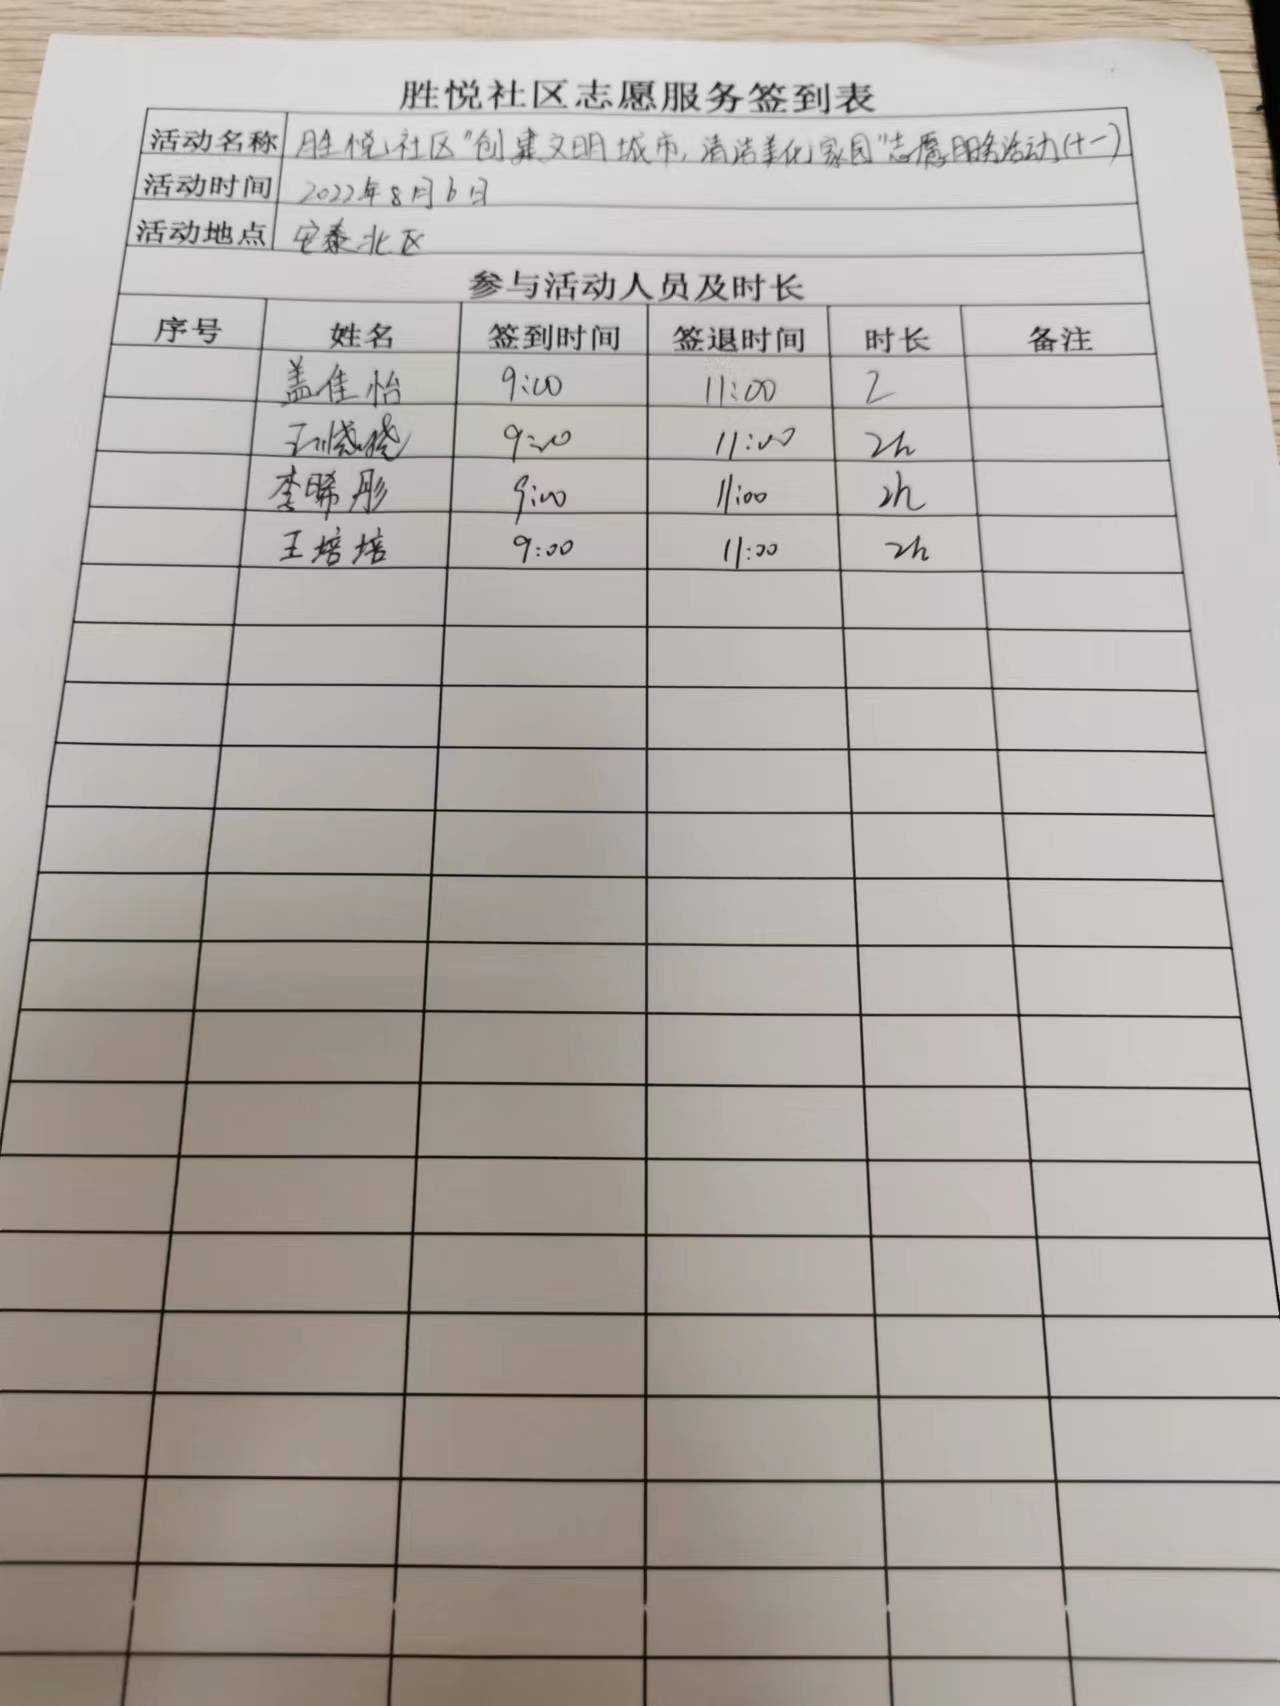 胜悦社区志愿服务签到表
活动名称 胜悦社区"创建文明城市,清洁美化家园"志愿服务活动(十一)
活动时间 2022年8月6日
活动地点 安泰北区
参与活动人员及时长
序号 姓名 签到时间 签退时间 时长 备注
盖佳怡 9:00 11:00 2
王 9:00 11:00 2h
李晞彤 9:00 11:00 2h
王培培 9:00 11:00 2h